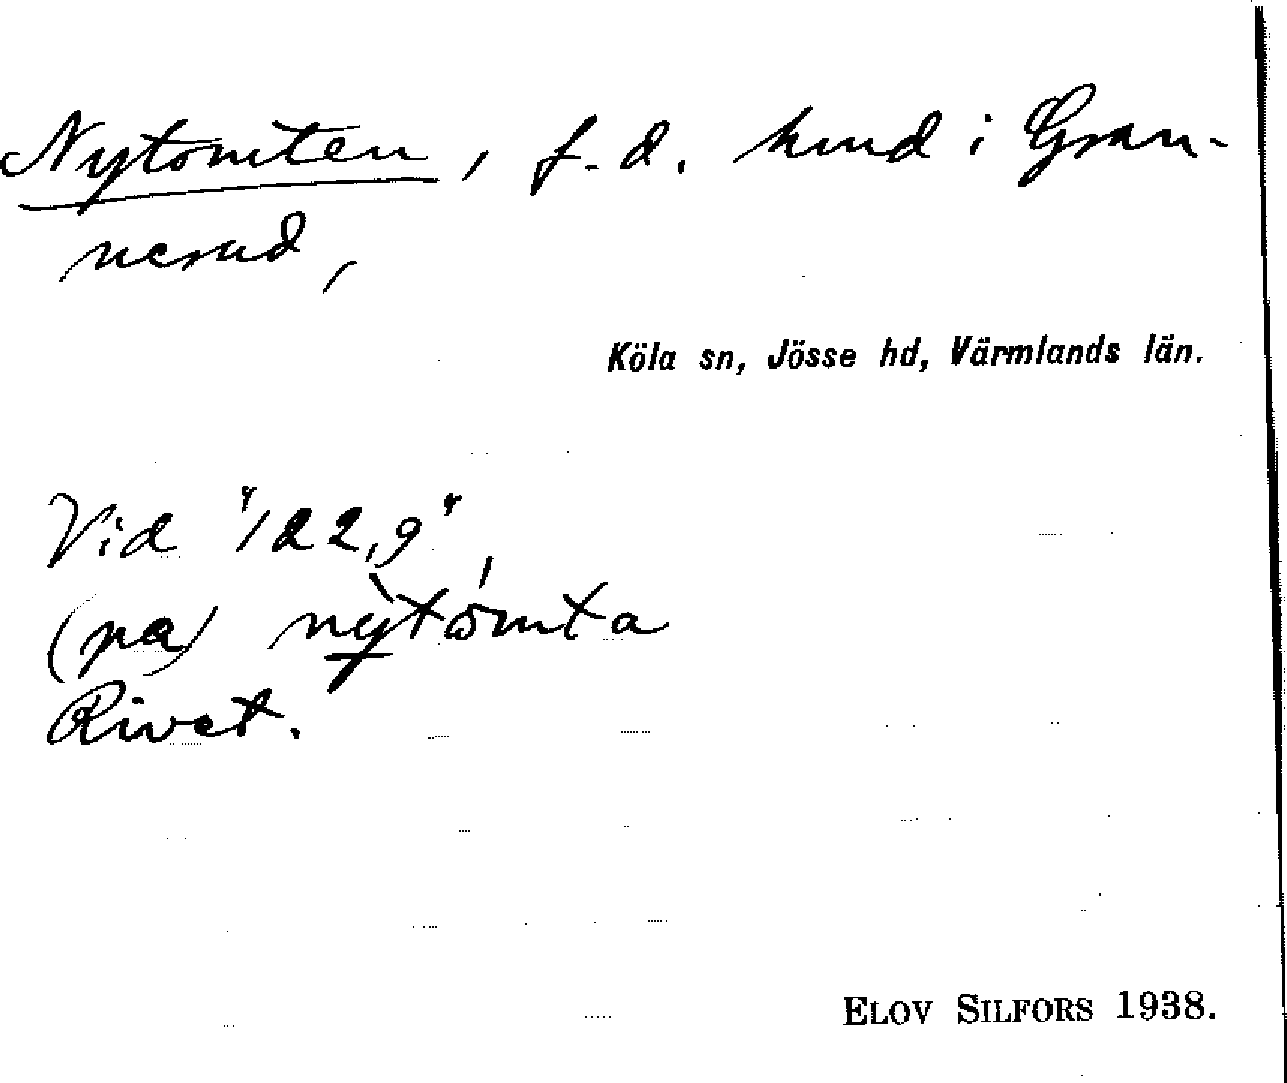 Nytomten, f.d. hmd i Gran-
nerud,
Köla sn, Jösse hd, Värmlands län.
Vid "122,9",
(på) nỳtómta
Rivet.
ELOV SILFORS 1938.